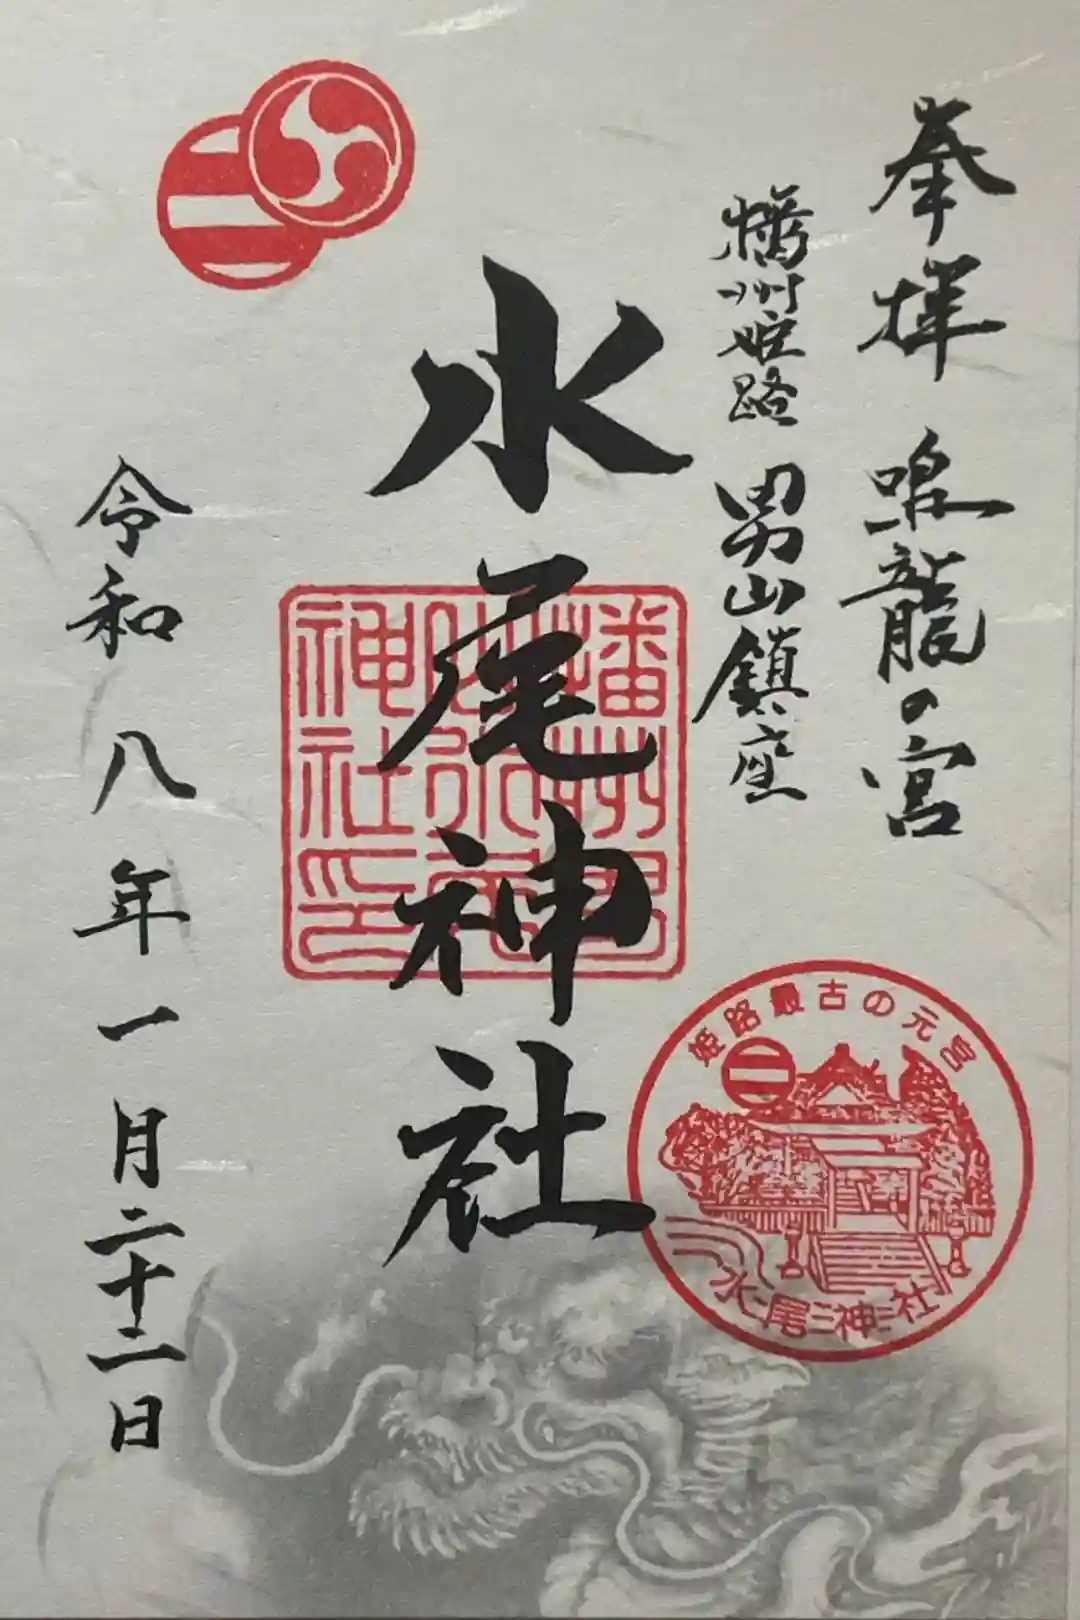 奉拝 鳴龍の宮
播州姫路 男山鎮座
水尾神社
令和八年一月二十二日
播州男
山水尾
神社印
姫路最古の元宮
二
水尾神社